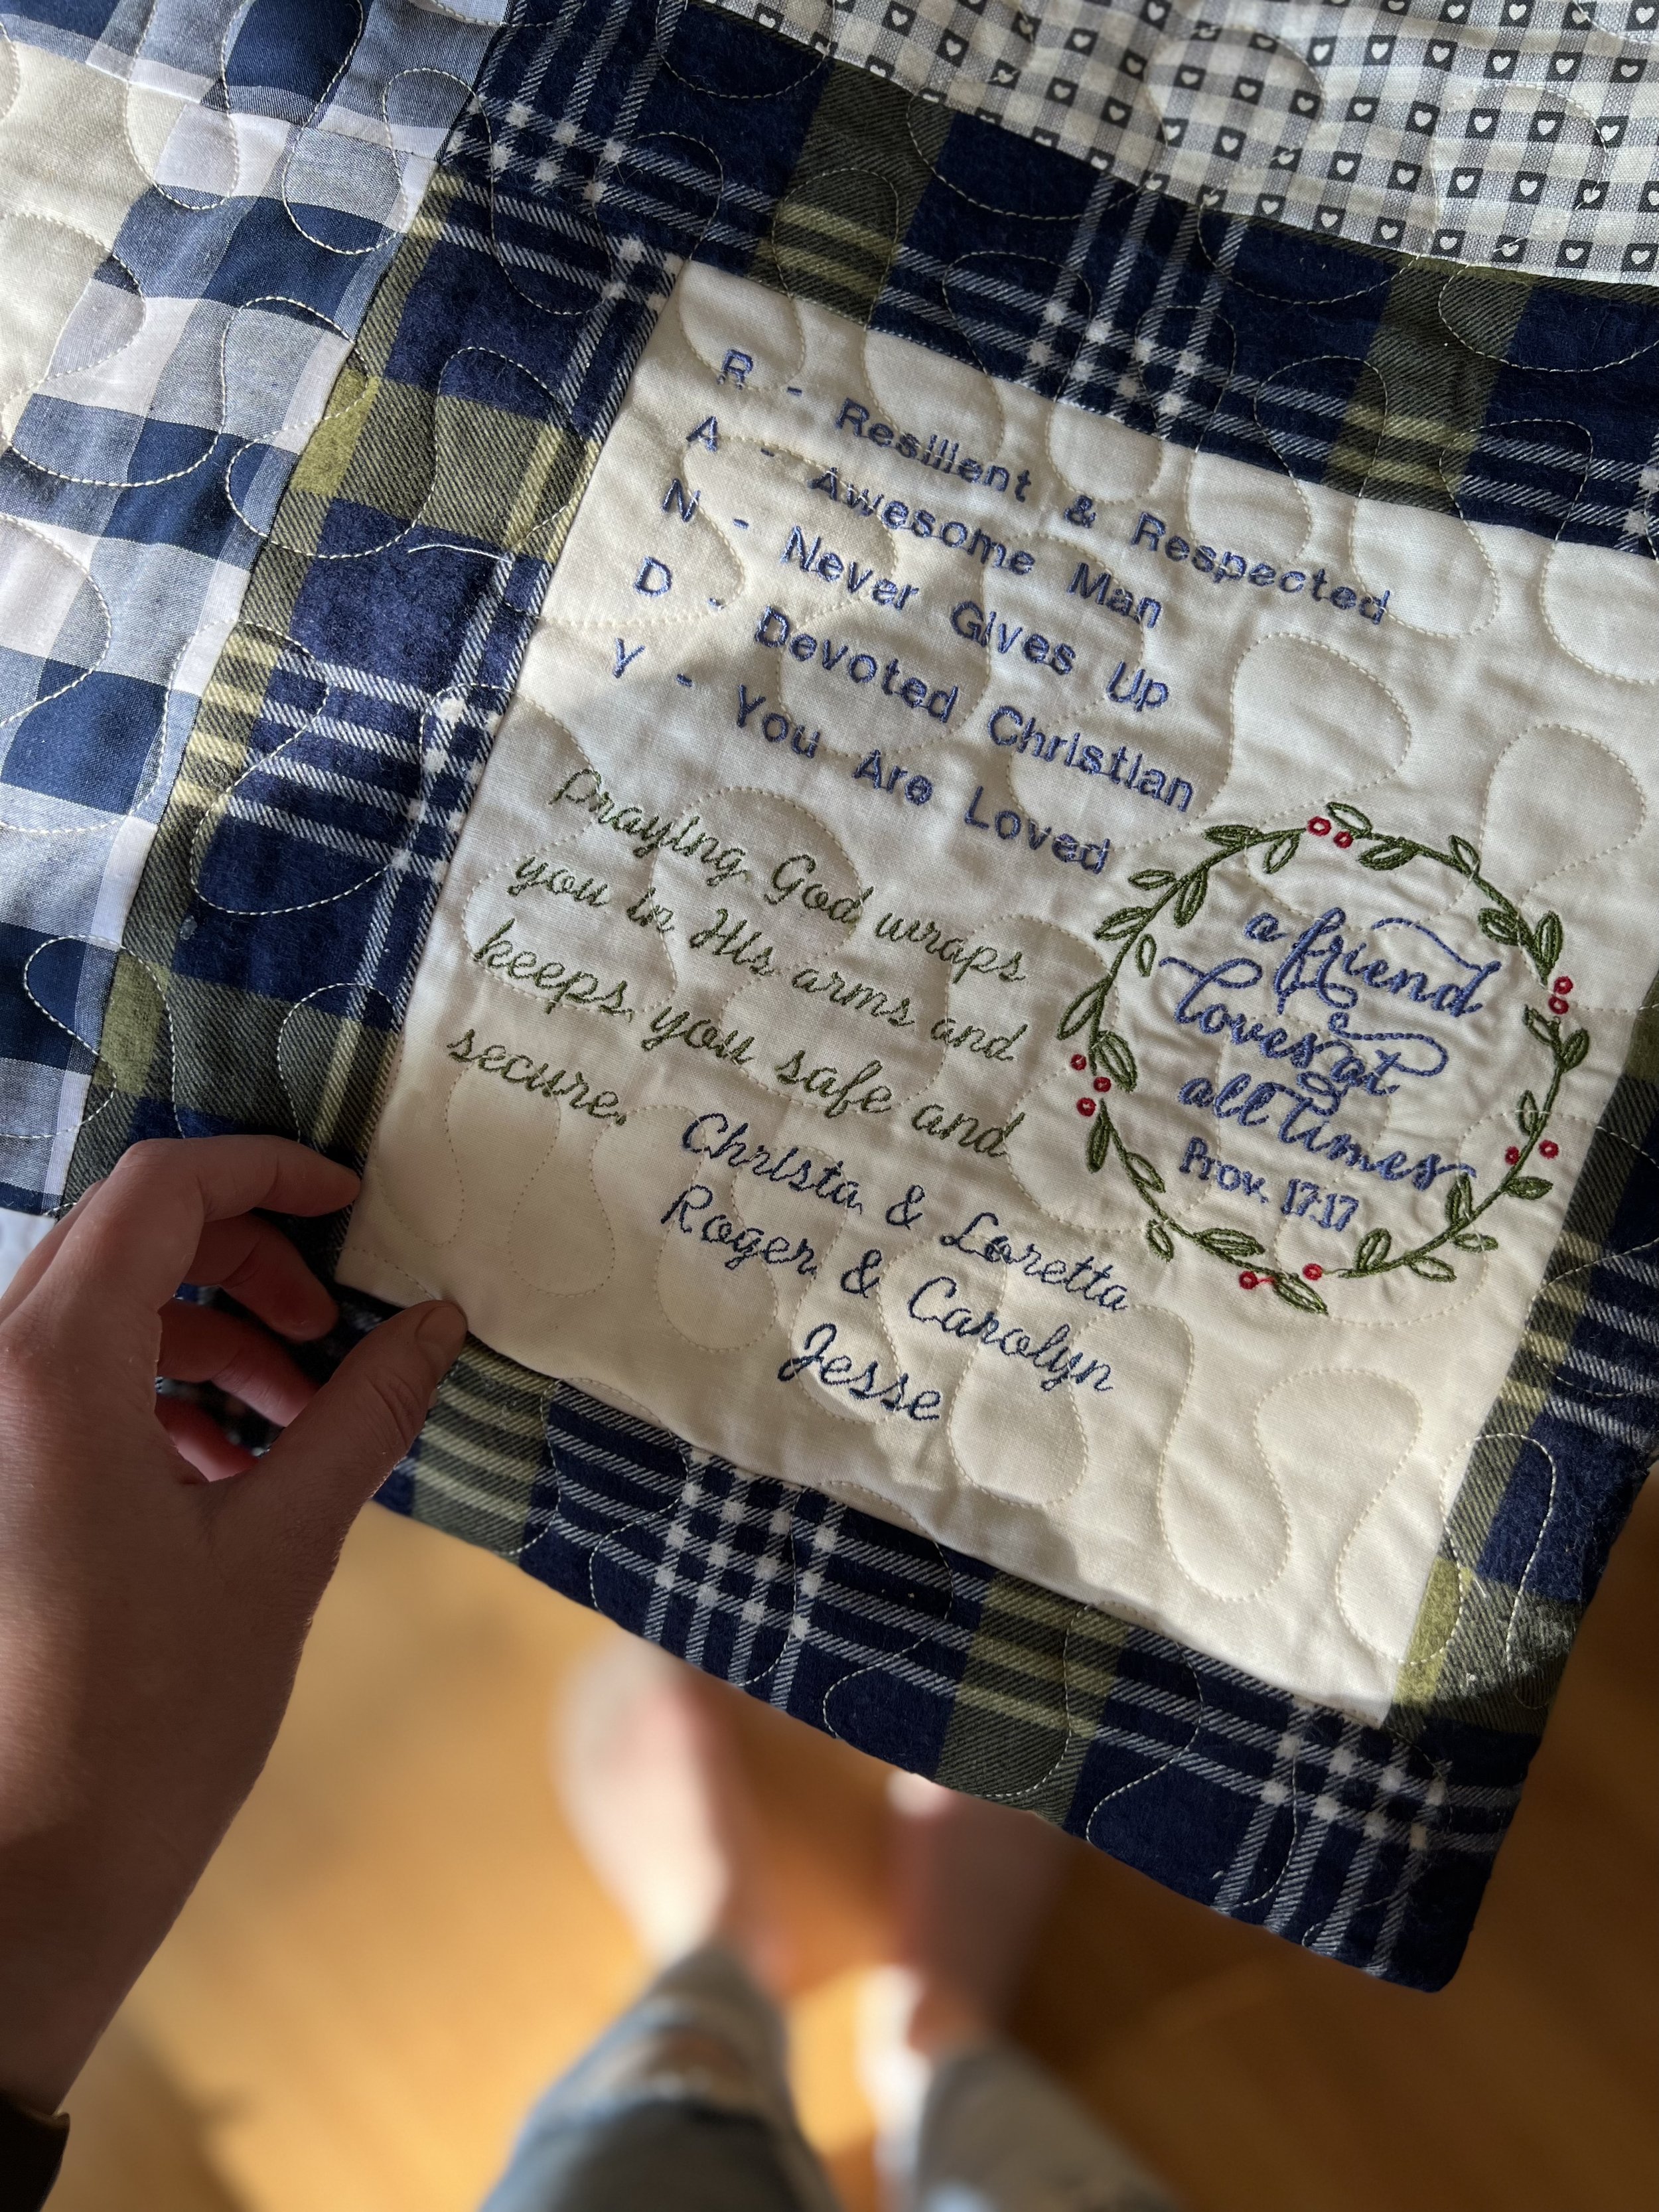 R - Resilient & Respected
A - Awesome Man
N - Never Gives Up
D - Devoted Christian
Y - You Are Loved
Praying God wraps
you in His arms and
keeps you safe and
secure.
a friend
loves at
all times
Prov. 17:17
Christa & Loretta
Roger & Carolyn
Jesse